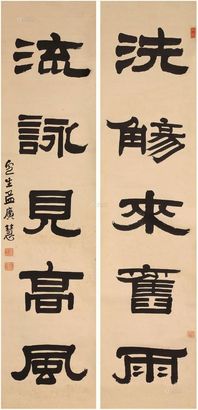 洗觴來舊雨
流詠見高風
定生孟廣慧